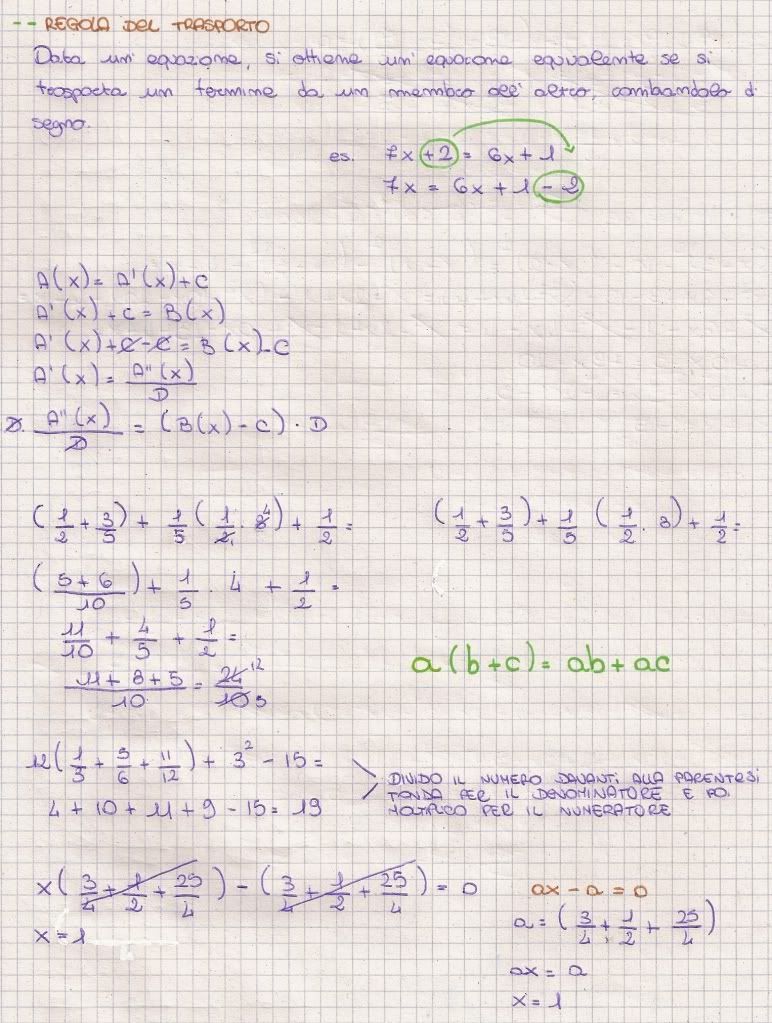 -- REGOLA DEL TRASPORTO
Data un' equazione, si ottiene un' equazione equivalente se si
trasporta un termine da un membro all' altro, cambiandolo di
segno.
es. 7x +2 = 6x + 1
7x = 6x + 1 - 2
A(x) = A'(x) + C
A'(x) + C = B(x)
A'(x) + C - C = B(x) - C
A'(x) = A''(x)/D
D · A''(x)/D = (B(x) - C) · D
(1/2 + 3/5) + 1/5 (1/2 · 8) + 1/2 =
(1/2 + 3/5) + 1/5 (1/2 · 8) + 1/2 =
((5+6)/10) + 1/5 · 4 + 1/2 =
11/10 + 4/5 + 1/2 =
(11 + 8 + 5)/10 = 24/10 12 5
a(b+c) = ab + ac
12(1/3 + 5/6 + 11/12) + 3² - 15 =
4 + 10 + 11 + 9 - 15 = 19
DIVIDO IL NUMERO DAVANTI ALLA PARENTESI
TONDA PER IL DENOMINATORE E POI
MOLTIPLICO PER IL NUMERATORE
x(3/4 + 1/2 + 25/4) - (3/4 + 1/2 + 25/4) = 0
x = 1
ax - a = 0
a = (3/4 + 1/2 + 25/4)
ax = a
x = 1